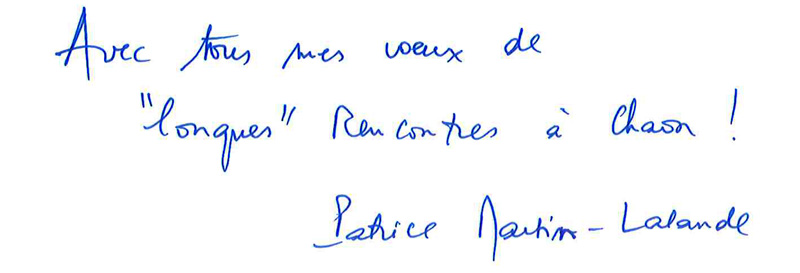 Avec tous mes voeux de
"longues" Rencontres à Chaon !
Patrice Martin-Lalande